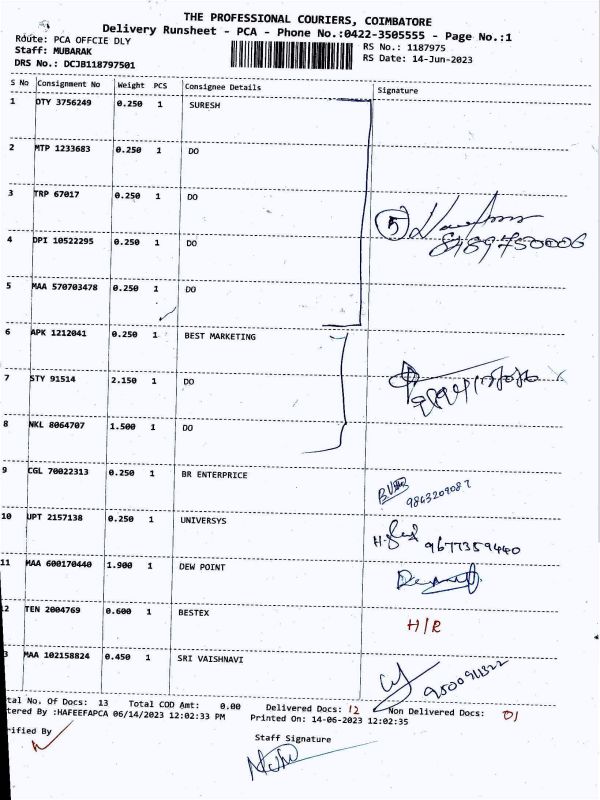 THE PROFESSIONAL COURIERS, COIMBATORE
Delivery Runsheet - PCA - Phone No.:0422-3505555 - Page No.:1
Route: PCA OFFCIE DLY
RS No.: 1187975
Staff: MUBARAK
RS Date: 14-Jun-2023
DRS No.: DCJB118797501
S No Consignment No Weight PCS Consignee Details Signature
1 OTY 3756249 0.250 1 SURESH
2 MTP 1233683 0.250 1 DO
3 TRP 67017 0.250 1 DO
5
4 DPI 10522295 0.250 1 DO
8789750006
5 MAA 570703478 0.250 1 DO
6 APK 1212041 0.250 1 BEST MARKETING
7 STY 91514 2.150 1 DO
8 NKL 8064707 1.500 1 DO
9 CGL 70022313 0.250 1 BR ENTERPRICE
10 UPT 2157138 0.250 1 UNIVERSYS
9677359440
11 MAA 600170440 1.900 1 DEW POINT
2 TEN 2004769 0.600 1 BESTEX H/R
3 MAA 102158824 0.450 1 SRI VAISHNAVI
tal No. Of Docs: 13 Total COD Amt: 0.00 Delivered Docs: 12 Non Delivered Docs: 01
tered By :HAFEEFAPCA 06/14/2023 12:02:33 PM Printed On: 14-06-2023 12:02:35
rified By
Staff Signature